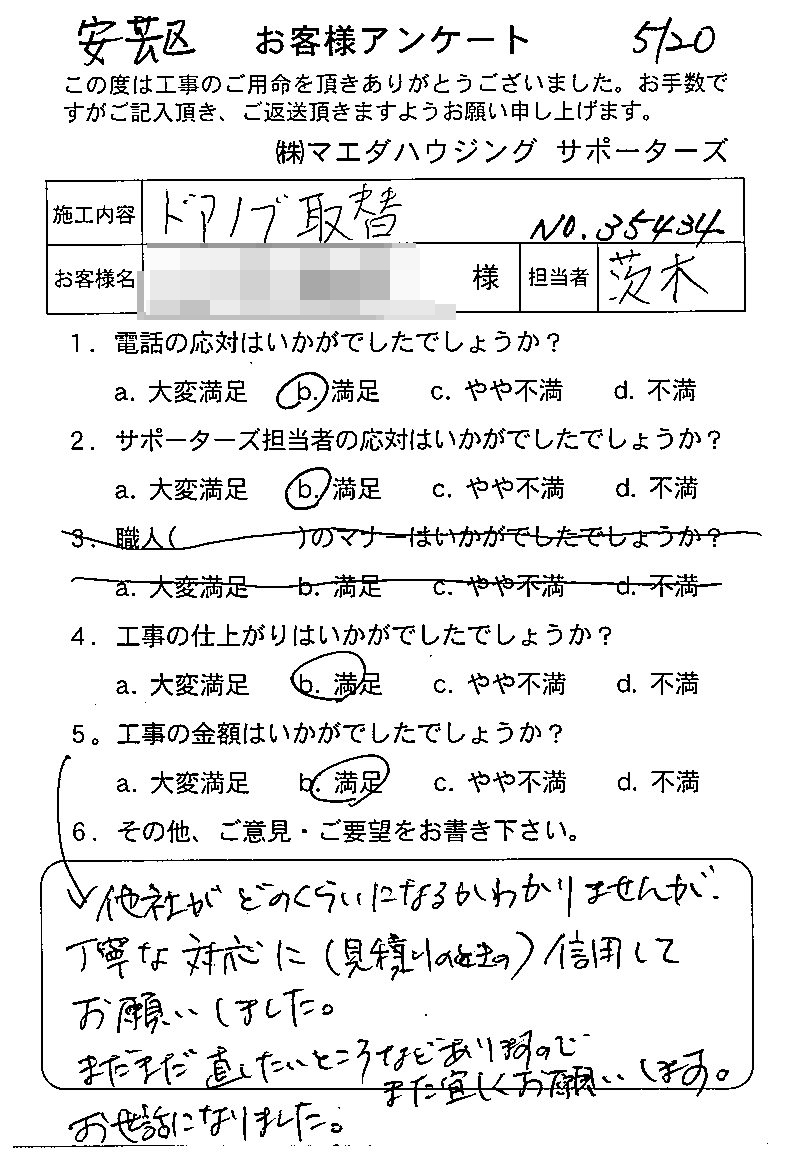 安芸区 お客様アンケート 5/20
この度は工事のご用命を頂きありがとうございました。お手数で
すがご記入頂き、ご返送頂きますようお願い申し上げます。
㈱マエダハウジング サポーターズ
施工内容 ドアノブ取替 NO.35434
お客様名 様 担当者 茨木
1. 電話の応対はいかがでしたでしょうか?
a. 大変満足 b. 満足 c. やや不満 d. 不満
2. サポーターズ担当者の応対はいかがでしたでしょうか?
a. 大変満足 b. 満足 c. やや不満 d. 不満
3. 職人( )のマナーはいかがでしたでしょうか?
a. 大変満足 b. 満足 c. やや不満 d. 不満
4. 工事の仕上がりはいかがでしたでしょうか?
a. 大変満足 b. 満足 c. やや不満 d. 不満
5。工事の金額はいかがでしたでしょうか?
a. 大変満足 b. 満足 c. やや不満 d. 不満
6. その他、ご意見・ご要望をお書き下さい。
他社がどのくらいになるかわかりませんが、
丁寧な対応に(見積りのときの)信用して
お願いしました。
まだまだ直したいところなどありますので
また宜しくお願いします。
お世話になりました。